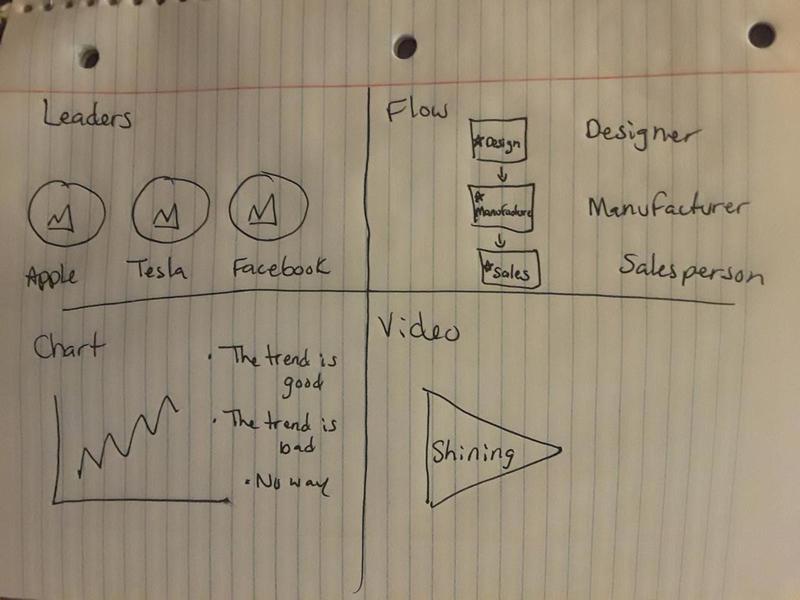 Leaders
Apple
Tesla
Facebook
Flow
*Design
Designer
*
Manufacture
Manufacturer
*Sales
Salesperson
Chart
• The trend is
good
• The trend is
bad
• No way
Video
Shining